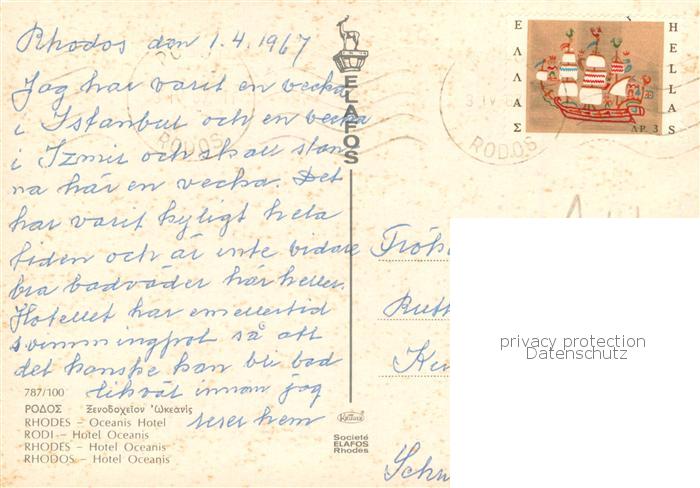 Rhodos den 1.4.1967
Jag har varit en vecka
i Istanbul och en vecka
i Izmir och skall stan
na här en vecka. Det
har varit kyligt hela
tiden och är inte vidare
bra badväder här heller.
Hotellet har emellertid
svimmingpol så att
det kanske kan bli bad
likväl innan jag
reser hem
787/100
ΡΟΔΟΣ Ξενοδοχεῖον Ὠκεανίς
RHODES – Oceanis Hotel
RODI – Hotel Oceanis
RHODES – Hotel Oceanis
RHODOS – Hotel Oceanis
ELAFOS
Societé
ELAFOS
Rhodes
ΕΛΛΑΣ
HELLAS
ΔΡ. 3
RODOS
RODOS
privacy protection
Datenschutz